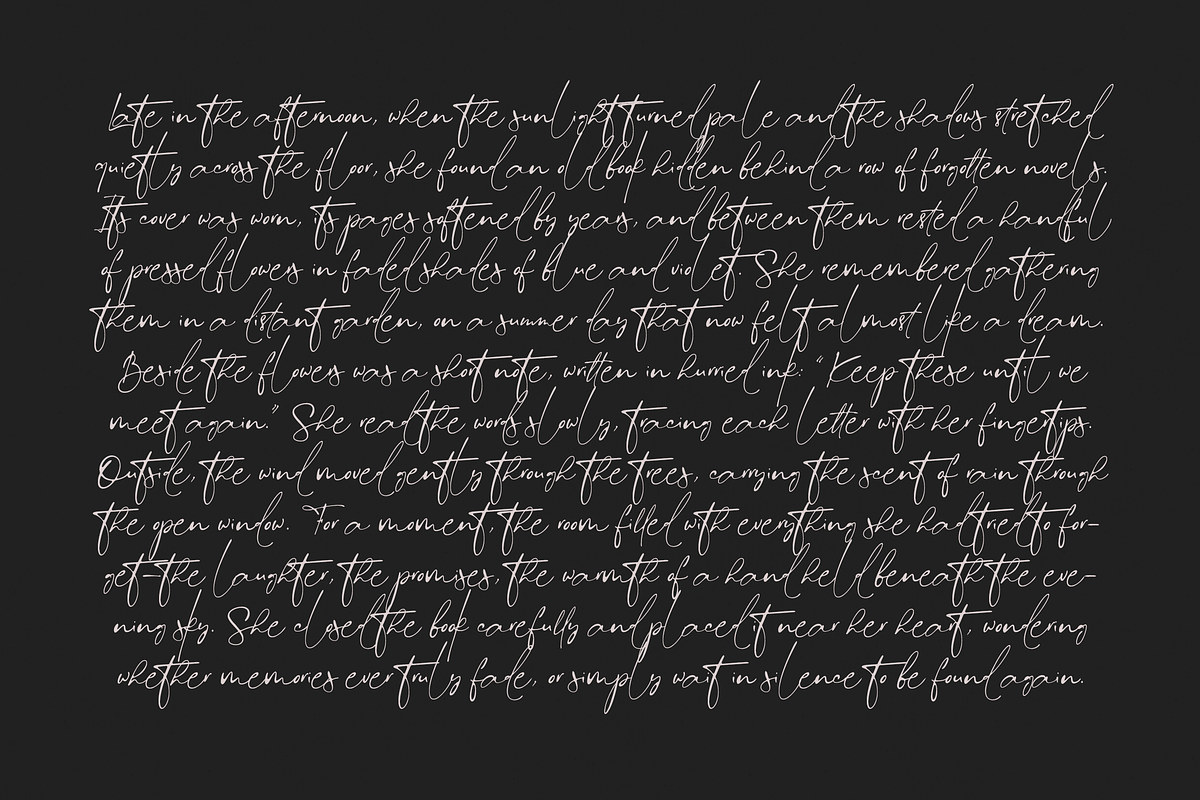 Late in the afternoon, when the sunlight turned pale and the shadows stretched
quietly across the floor, she found an old book hidden behind a row of forgotten novels.
Its cover was worn, its pages softened by years, and between them rested a handful
of pressed flowers in faded shades of blue and violet. She remembered gathering
them in a distant garden, on a summer day that now felt almost like a dream.
Beside the flowers was a short note, written in hurried ink: “Keep these until we
meet again.” She read the words slowly, tracing each letter with her fingertips.
Outside, the wind moved gently through the trees, carrying the scent of rain through
the open window. For a moment, the room filled with everything she had tried to for-
get—the laughter, the promises, the warmth of a hand held beneath the eve-
ning sky. She closed the book carefully and placed it near her heart, wondering
whether memories ever truly fade, or simply wait in silence to be found again.